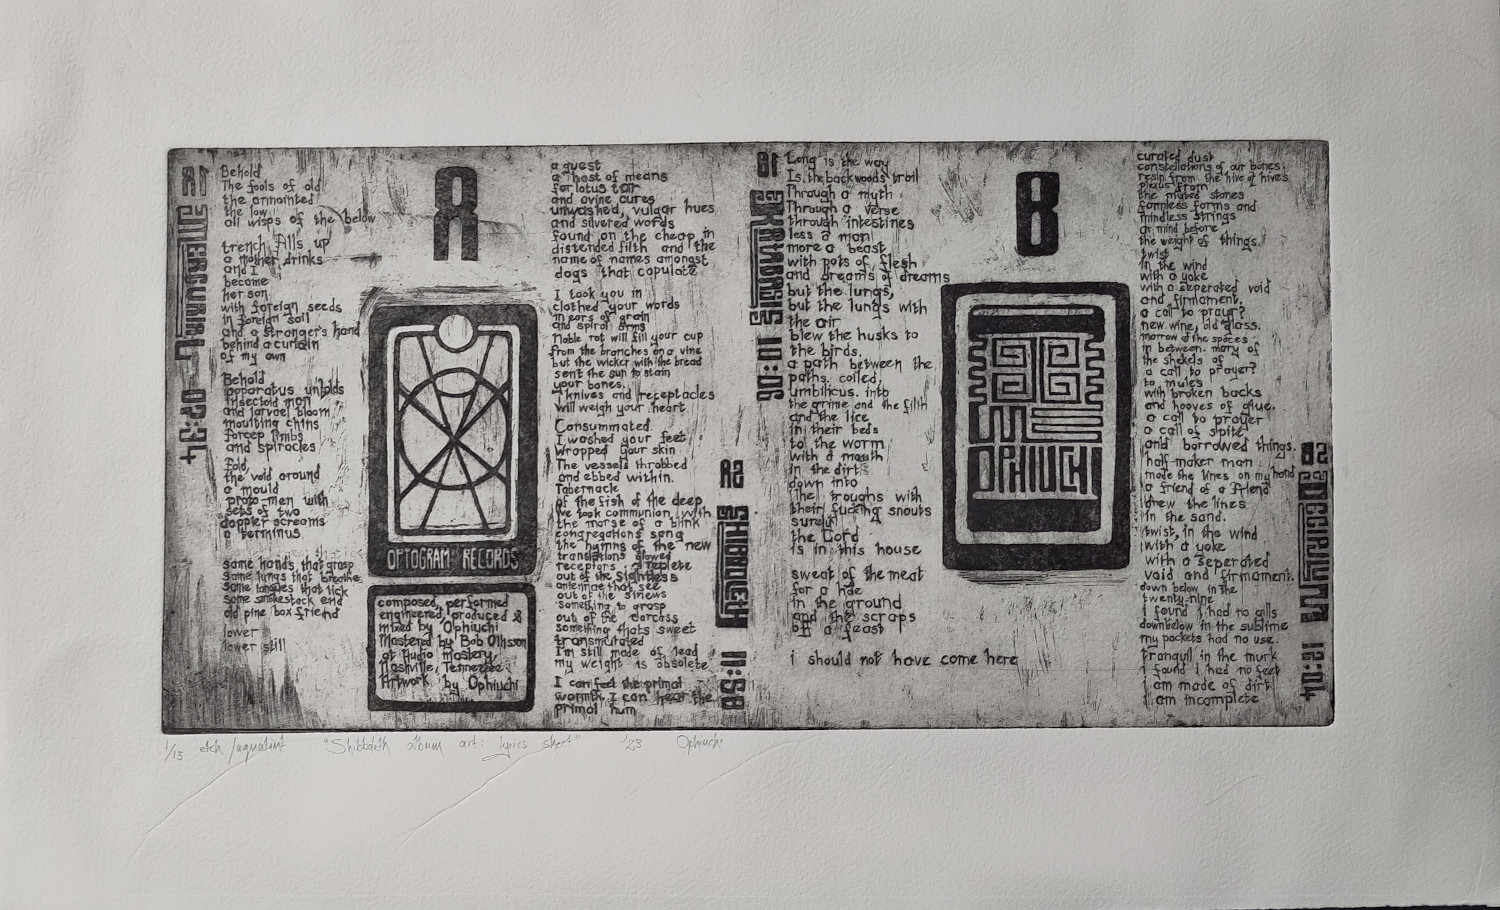 A1
02:34
Behold
The fools of old
the annointed
the law
all wisps of the below
trench fills up
a mother drinks
and I
become
her son
with foreign seeds
in foreign soil
and a stranger's hand
behind a curtain
of my own
Behold
apparatus unfolds
insectoid man
and larvael bloom
moulting chins
forcep limbs
and spiracles
fold,
the void around
a mould
proto-men with
sets of two
doppler screams
a terminus
same hands, that grasp
same lungs that breathe
same tongues that lick
same smokestack end
old pine box friend
lower
lower still
A
OPTOGRAM RECORDS
composed, performed
engineered, produced &
mixed by Ophiuchi
Mastered by Bob Olhsson
at Audio Mastery
Nashville, Tennessee
Artwork by Ophiuchi
a guest
a host of means
for lotus tar
and ovine cures
unwashed, vulgar hues
and silvered words
found on the cheap in
distended filth and the
name of names amongst
dogs that copulate
I took you in
clothed your words
in ears of grain
and spiral arms
Noble rot will fill your cup
from the branches on a vine
but the wicker with the bread
sent the sun to stain
your bones.
knives and receptacles
will weigh your heart
Consummated.
I washed your feet
wrapped your skin
The vessels throbbed
and ebbed within.
Tabernacle
of the fish of the deep
we took communion, with
the morse of a blink
congregations sang
the hymns of the new
translations slowed
receptors replete
out of the sightless
antennae that see
out of the sinews
something to grasp
out of the carcass
something thats sweet
transmutated
I'm still made of lead
my weight is obsolete
I can feel the primal
warmth. I can hear the
primal hum
A2
SHIBBOLETH
11:58
B1
KATABASIS
10:06
Long is the way
Is the backwoods trail
Through a myth
Through a verse
through intestines
less a man
more a beast
with pots of flesh
and dreams of dreams
but the lungs,
but the lungs with
the air
blew the husks to
the birds.
a path between the
paths. coiled,
umbilicus. into
the grime and the filth
and the lice
in their beds
to the worm
with a mouth
in the dirt
down into
the troughs with
their fucking snouts
surely
the Lord
is in this house
sweat of the meat
for a hide
in the ground
and the scraps
of a feast
i should not have come here
B
OPHIUCHI
curated dust
constellations of our bones.
resin from the hive of hives
plexus from
the muted stones
formless forms and
mindless strings
or mind before
the weight of things.
twist
in the wind
with a yoke
with a seperated void
and firmament.
a call to prayer?
new wine, old glass.
marrow of the spaces
in between. many of
the shekels of
a call to prayer?
to mules
with broken backs
and hooves of glue.
a call to prayer
a call of spite
and borrowed things.
half-maker man
made the lines on my hand
a friend of a friend
drew the lines
in the sand.
twist, in the wind
with a yoke
with a seperated
void and firmament.
down below in the
twenty-nine
i found i had no gills
downbelow in the sublime
my pockets had no use.
tranquil in the murk
i found i had no feet
i am made of dirt
i am incomplete
B2
12:04
1/15 etch/aquatint "Shibboleth album art: lyrics sheet" '23 Ophiuchi